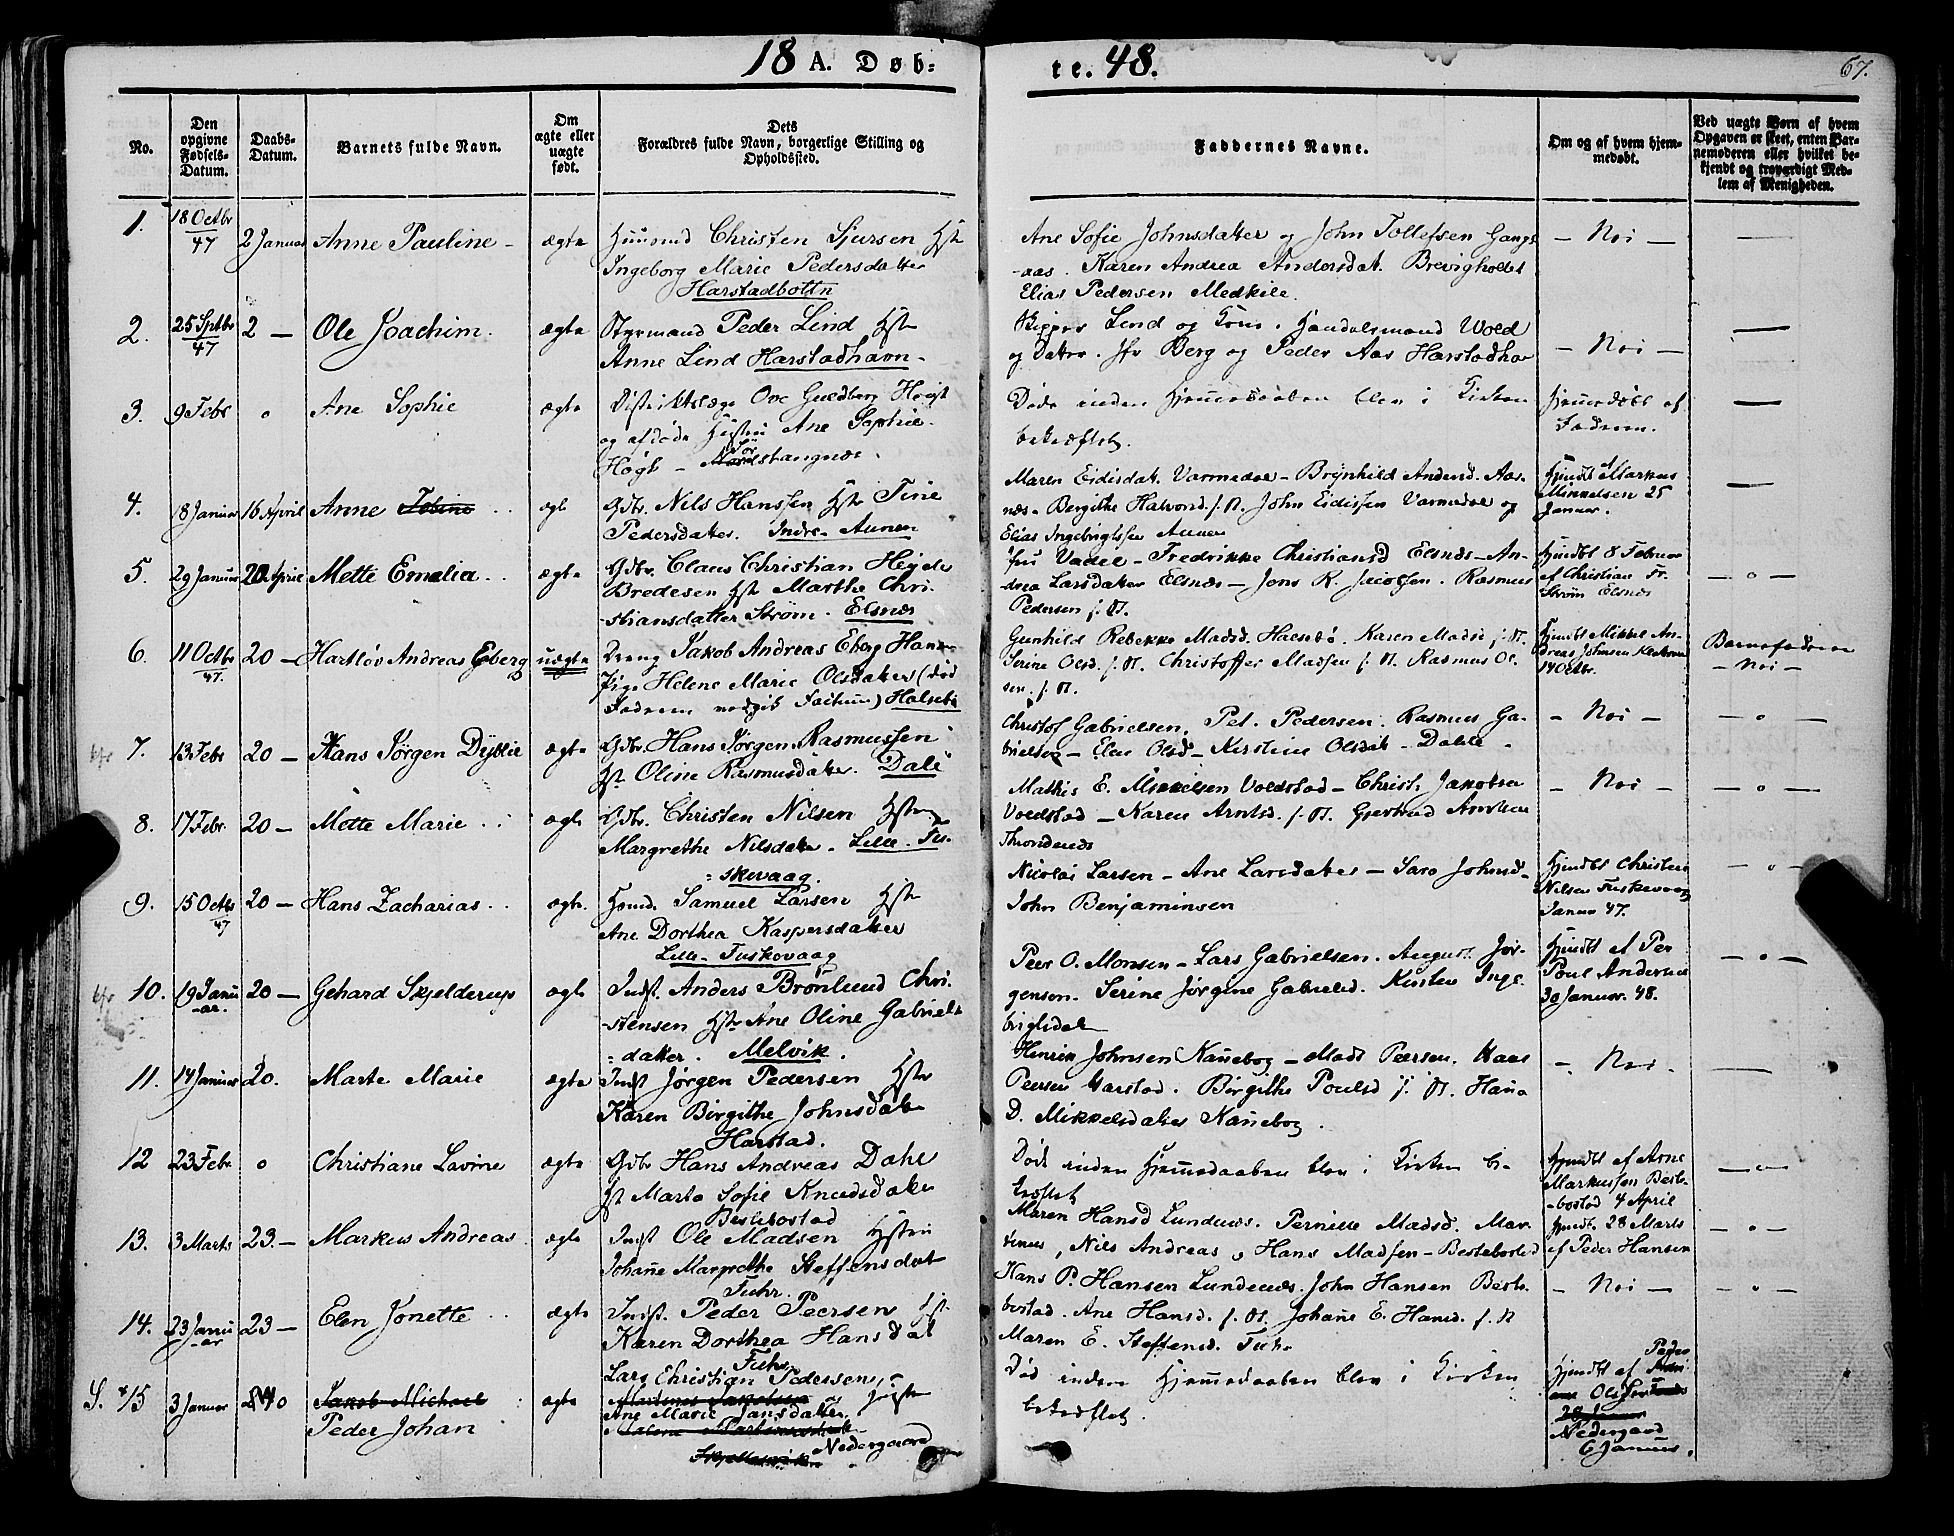 18 A. Døb-
te. 48.
67.
No.
Den opgivne Fødsels-Datum.
Daabs-Datum.
Barnets fulde Navn.
Om ægte eller uægte født.
Dets Forældres fulde Navn, borgerlige Stilling og Opholdssted.
Faddernes Navne.
Om og af hvem hjemmedøbt.
Ved uægte Børn af hvem
Opgaven er skeet, enten Bar-
nemoderen eller hvilket be-
kjendt og troværdigt Med-
lem af Menigheden.
1. 18 Octbr 47 2 Januar Anne Pauline ægte
Christen Sjursen Hst
Ingeborg Marie Pedersdatter
Harstadbottn
Ane Sofie Johnsdatter og John Tollefsen Gangs
-aas. Karen Andrea Andersdat. Brevigholdet
Elias Pedersen Medkile.
- Nei -
2. 25 Sptbr 47 2 - Ole Joachim. ægte
Styrmand Peder Lind Hst
Anne Lind Harstadhavn
Skipper Lind og Kone. Handelsmand Wold
og Datter. Berg og Peder Aas Harstadhav
- Nei -
3. 9 Febr o Ane Sophie ægte
Distriktslæge Ove Guldberg Høgh
og afdøde Hustru Ane Sophie
Høgh -
Døde inden Hjemmedaaben blev i Kirken
bekræftet.
Hjemmedøbt af
Faderen.
4. 18 Januar 16 April Anne Tobine ægte
Gdbr. Nils Hanssen Hst Tine
Pedersdatter. Indre-Aunen
Maren Eidisdat. Varmedal - Brynhild Andersd. Aas-
nes - Bergithe Halvord. f. St. John Eidissen Varmedal og
Elias Ingebrigtsen Aunen
Hjmdbt af Markus
Mikkelsen 25
Januar.
5. 29 Januar 20 April Mette Emelia ægte
Gdbr. Claus Christian Heide
Bredesen Hst Marthe Chri-
stiansdatter Strøm. Elsnæs
Fredrikke Christiansd Elsnes - An-
drea Larsdatter Elsnæs - Jens K. Jacobsen. Rasmus
Pedersen f. St.
Hjmdbt 8 Februar
af Christian Fr.
Strøm Elsnæs
- o -
6. 11 Octbr 47. 20 - Hartløv Andreas Eberg uægte
Dreng Jakob Andreas Eberg
Pige Helene Marie Olsdatter (død
Faderen
Gunhild Rebekke Madsd.
Serine Olsd. f. St. Christoffer Madsen f. St. Rasmus Ol-
sen. f. St.
Hjmdbt Mikkel An-
dreas Johnsen
14 Octbr.
Barnefaderen
- Nei -
7. 13 Febr 20 - Hans Jørgen Dyblie ægte
Gdbr. Hans Jørgen Rasmussen
Hst Oline Rasmusdatter. Dale
Christof Gabrielsen. Pet. Pedersen. Rasmus Ga-
brielsen - Elen Olsd - Kirstine Olsdat - Dahle -
- Nei -
- o -
8. 17 Febr. 20 - Mette Marie ægte
Gdbr. Christen Nilsen Hstru
Margrethe Nilsdatter. Lille-Tu-
skevaag.
Mathis E. Mikkelsen Voldstad - Christ. Jakobsen
Voldstad - Karen Arntsd. f. St. Gjertrud
Throndenæs
- Nei -
- o -
9. 15 Octbr 47 20 - Hans Zacharias ægte.
Hsmd. Samuel Larsen Hst
Ane Dorthea Kaspersdatter
Lille-Tuskevaag
Nicolai Larsen - Ane Larsdatter - Sara Johnsd-
John Benjaminsen
Hjmdbt Christen
Nilsen Tuskevaag
Januar 47.
- o -
10. 19 Janu-ar. 20 - Gehard Skjelderup ægte
Indst. Anders Brønlund Chri-
stensen Hst Ane Oline Gabriels-
datter. Melvik.
Peer O. Monsen - Lars Gabrielsen. August Jør-
gensen. Serine Jørgine Gabrielsd. Kirsten Inge-
brigtsdat
Hjmdbt af Per
Poul Andersen
30 Januar. 48.
- o -
11. 14 Januar 20. Marte Marie ægte
Indst Jørgen Pedersen Hstr
Karen Birgithe Johnsdatter
Harstad.
Henrik Johnsen Kanebog - Mads Peersen. Haas
Peersen Harstad. Birgithe Poulsd f. St. Hana
D. Mikkelsdatter Kanebog.
- Nei -
12 23 Febr. o Christiane Lavine ægte
Gdbr Hans Andreas Dahl
Hst Marta Sofie Knudsdatter
Bestebostad
Død inden Hjemmedaaben blev i Kirken be-
kræftet
Hjmdbt af Arne
Markussen Beste-
bostad 4 April
- o -
13. 3 Marts 23. - Markus Andreas ægte
Indst Ole Madsen Hstru
Johane Margrethe Steffensdat
Fuhr.
Maren Hansd Lundenæs. Pernille Madsd. Mar-
Nils Andreas, Hans Madsen - Bestebostad
Hjmdt. 28 Marts
af Peder Hansen
- o -
14. 23 Janu-ar 23 - Elen Jonette ægte
Indst. Peder Peersen Hst.
Karen Dorthea Hansdat
Fuhr
Hans P. Hansen Lundenæs. John Hansen Beste-
bostad. Ane Hansd. f. St. Johane E. Hansd. f. St
Maren E. Steffensd. Fuhr
- Nei -
- o -
S. 15 3 Januar 0 Jakob Michael ægte
Peder Johan
Lars Christian Pedersen,
Ane Marie Jansdatter
Nedergaard
Død inden Hjemmedaaben blev i Kirken
bekræftet.
Hjmdbt af Peder
Nedergaard
6 Januar.